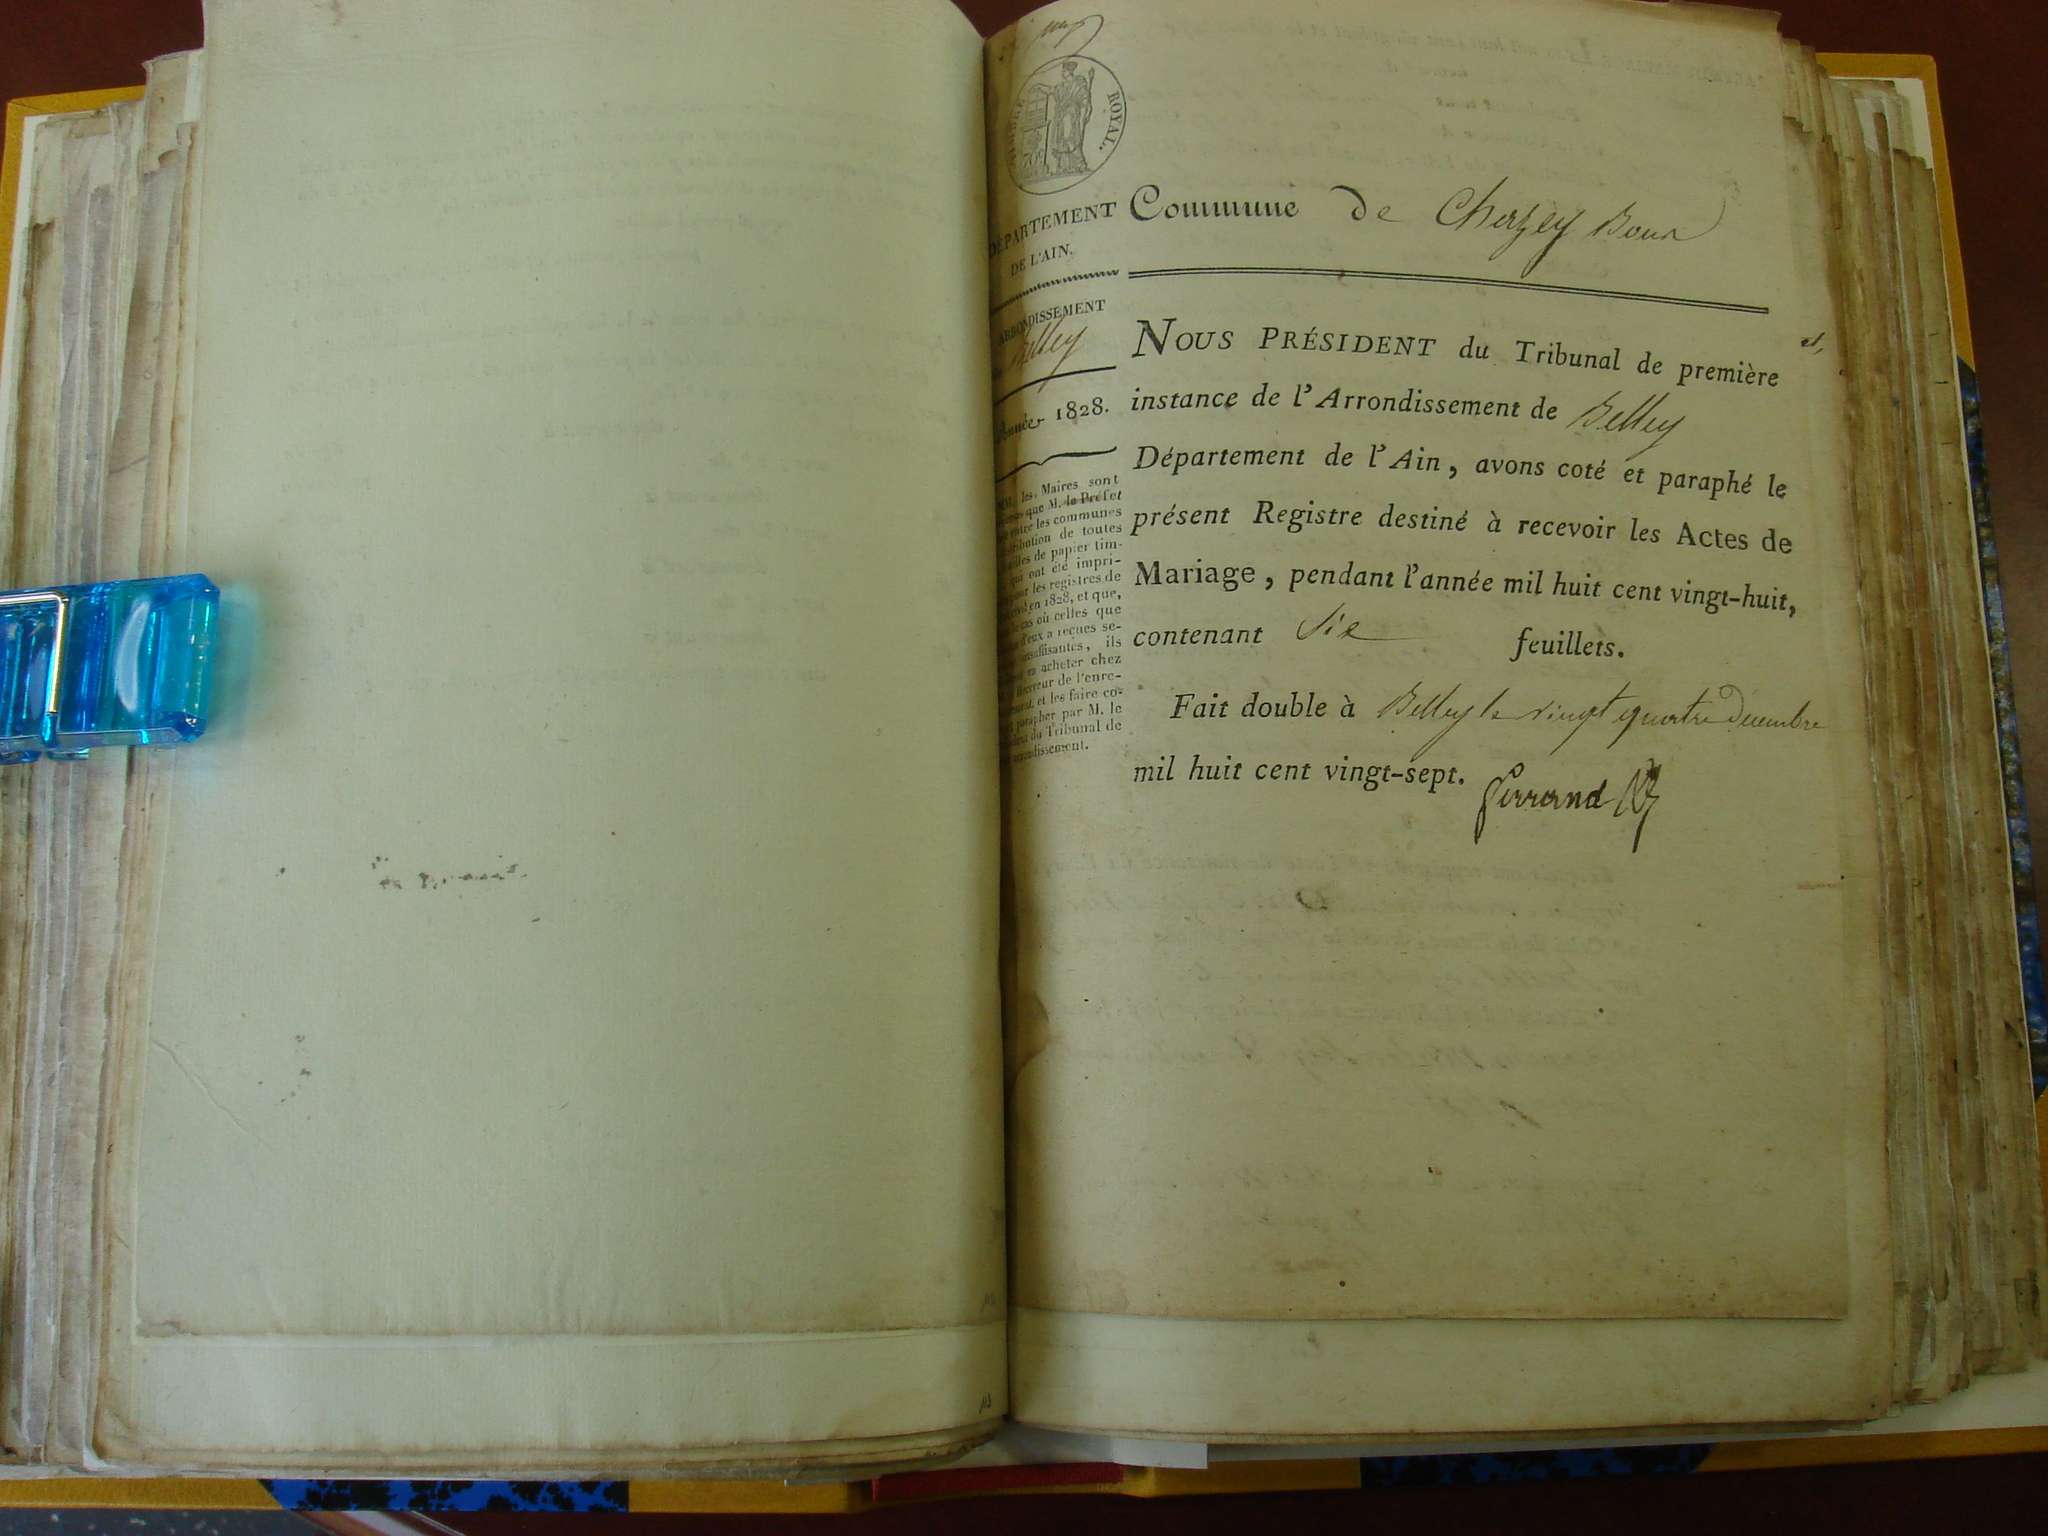 ROYAL.
DÉPARTEMENT
DE L'AIN.
ARRONDISSEMENT
Belley
Année 1828.
les Maires sont
que M. le Préfet
entre les communes
distribution de toutes
de papier tim-
qui ont été impri-
pour les registres de
en 1828, et que,
cas où celles que
d'eux a reçues se-
insuffisantes, ils
en acheter chez
Receveur de l'enre-
et les faire co-
parapher par M. le
du Tribunal de
arrondissement.
Commune de Cheyzey Boux
NOUS PRÉSIDENT du Tribunal de première
instance de l'Arrondissement de Belley
Département de l'Ain, avons coté et paraphé le
présent Registre destiné à recevoir les Actes de
Mariage, pendant l'année mil huit cent vingt-huit,
contenant Six feuillets.
Fait double à Belley le vingt quatre decembre
mil huit cent vingt-sept.